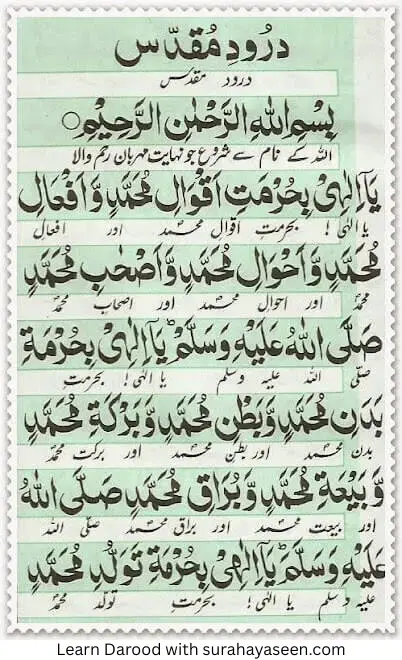 درودِ مُقدّس
درود مقدس
بِسْمِ اللهِ الرَّحْمٰنِ الرَّحِيْمِ
اللہ کے نام سے شروع جو نہایت مہربان رحم والا
يَآ اِلٰهِىْ بِحُرْمَتِ اَقْوَالِ مُحَمَّدٍ وَّ اَفْعَالِ
یا الٰہی! بحرمتِ اقوالِ محمد اور افعالِ
مُحَمَّدٍ وَّ اَحْوَالِ مُحَمَّدٍ وَّ اَصْحٰبِ مُحَمَّدٍ
محمد اور احوال محمد اور اصحاب محمد
صَلَّى اللهُ عَلَيْهِ وَسَلَّمَ ؕ يَآ اِلٰهِىْ بِحُرْمَةِ
صلی اللہ علیہ وسلم یا الٰہی! بحرمتِ
بَدَنِ مُحَمَّدٍ وَّ بَطْنِ مُحَمَّدٍ وَّ بَرْكَةِ مُحَمَّدٍ
بدن محمد اور بطن محمد اور برکت محمد
وَّ بَيْعَةِ مُحَمَّدٍ وَّ بُرَاقِ مُحَمَّدٍ صَلَّى اللهُ
اور بیعت محمد اور براق محمد صلی اللہ
عَلَيْهِ وَسَلَّمَ ؕ يَآ اِلٰهِىْ بِحُرْمَةِ تَوَلُّدِ مُحَمَّدٍ
علیہ وسلم یا الٰہی! بحرمتِ تولد محمد
Learn Darood with surahayaseen.com